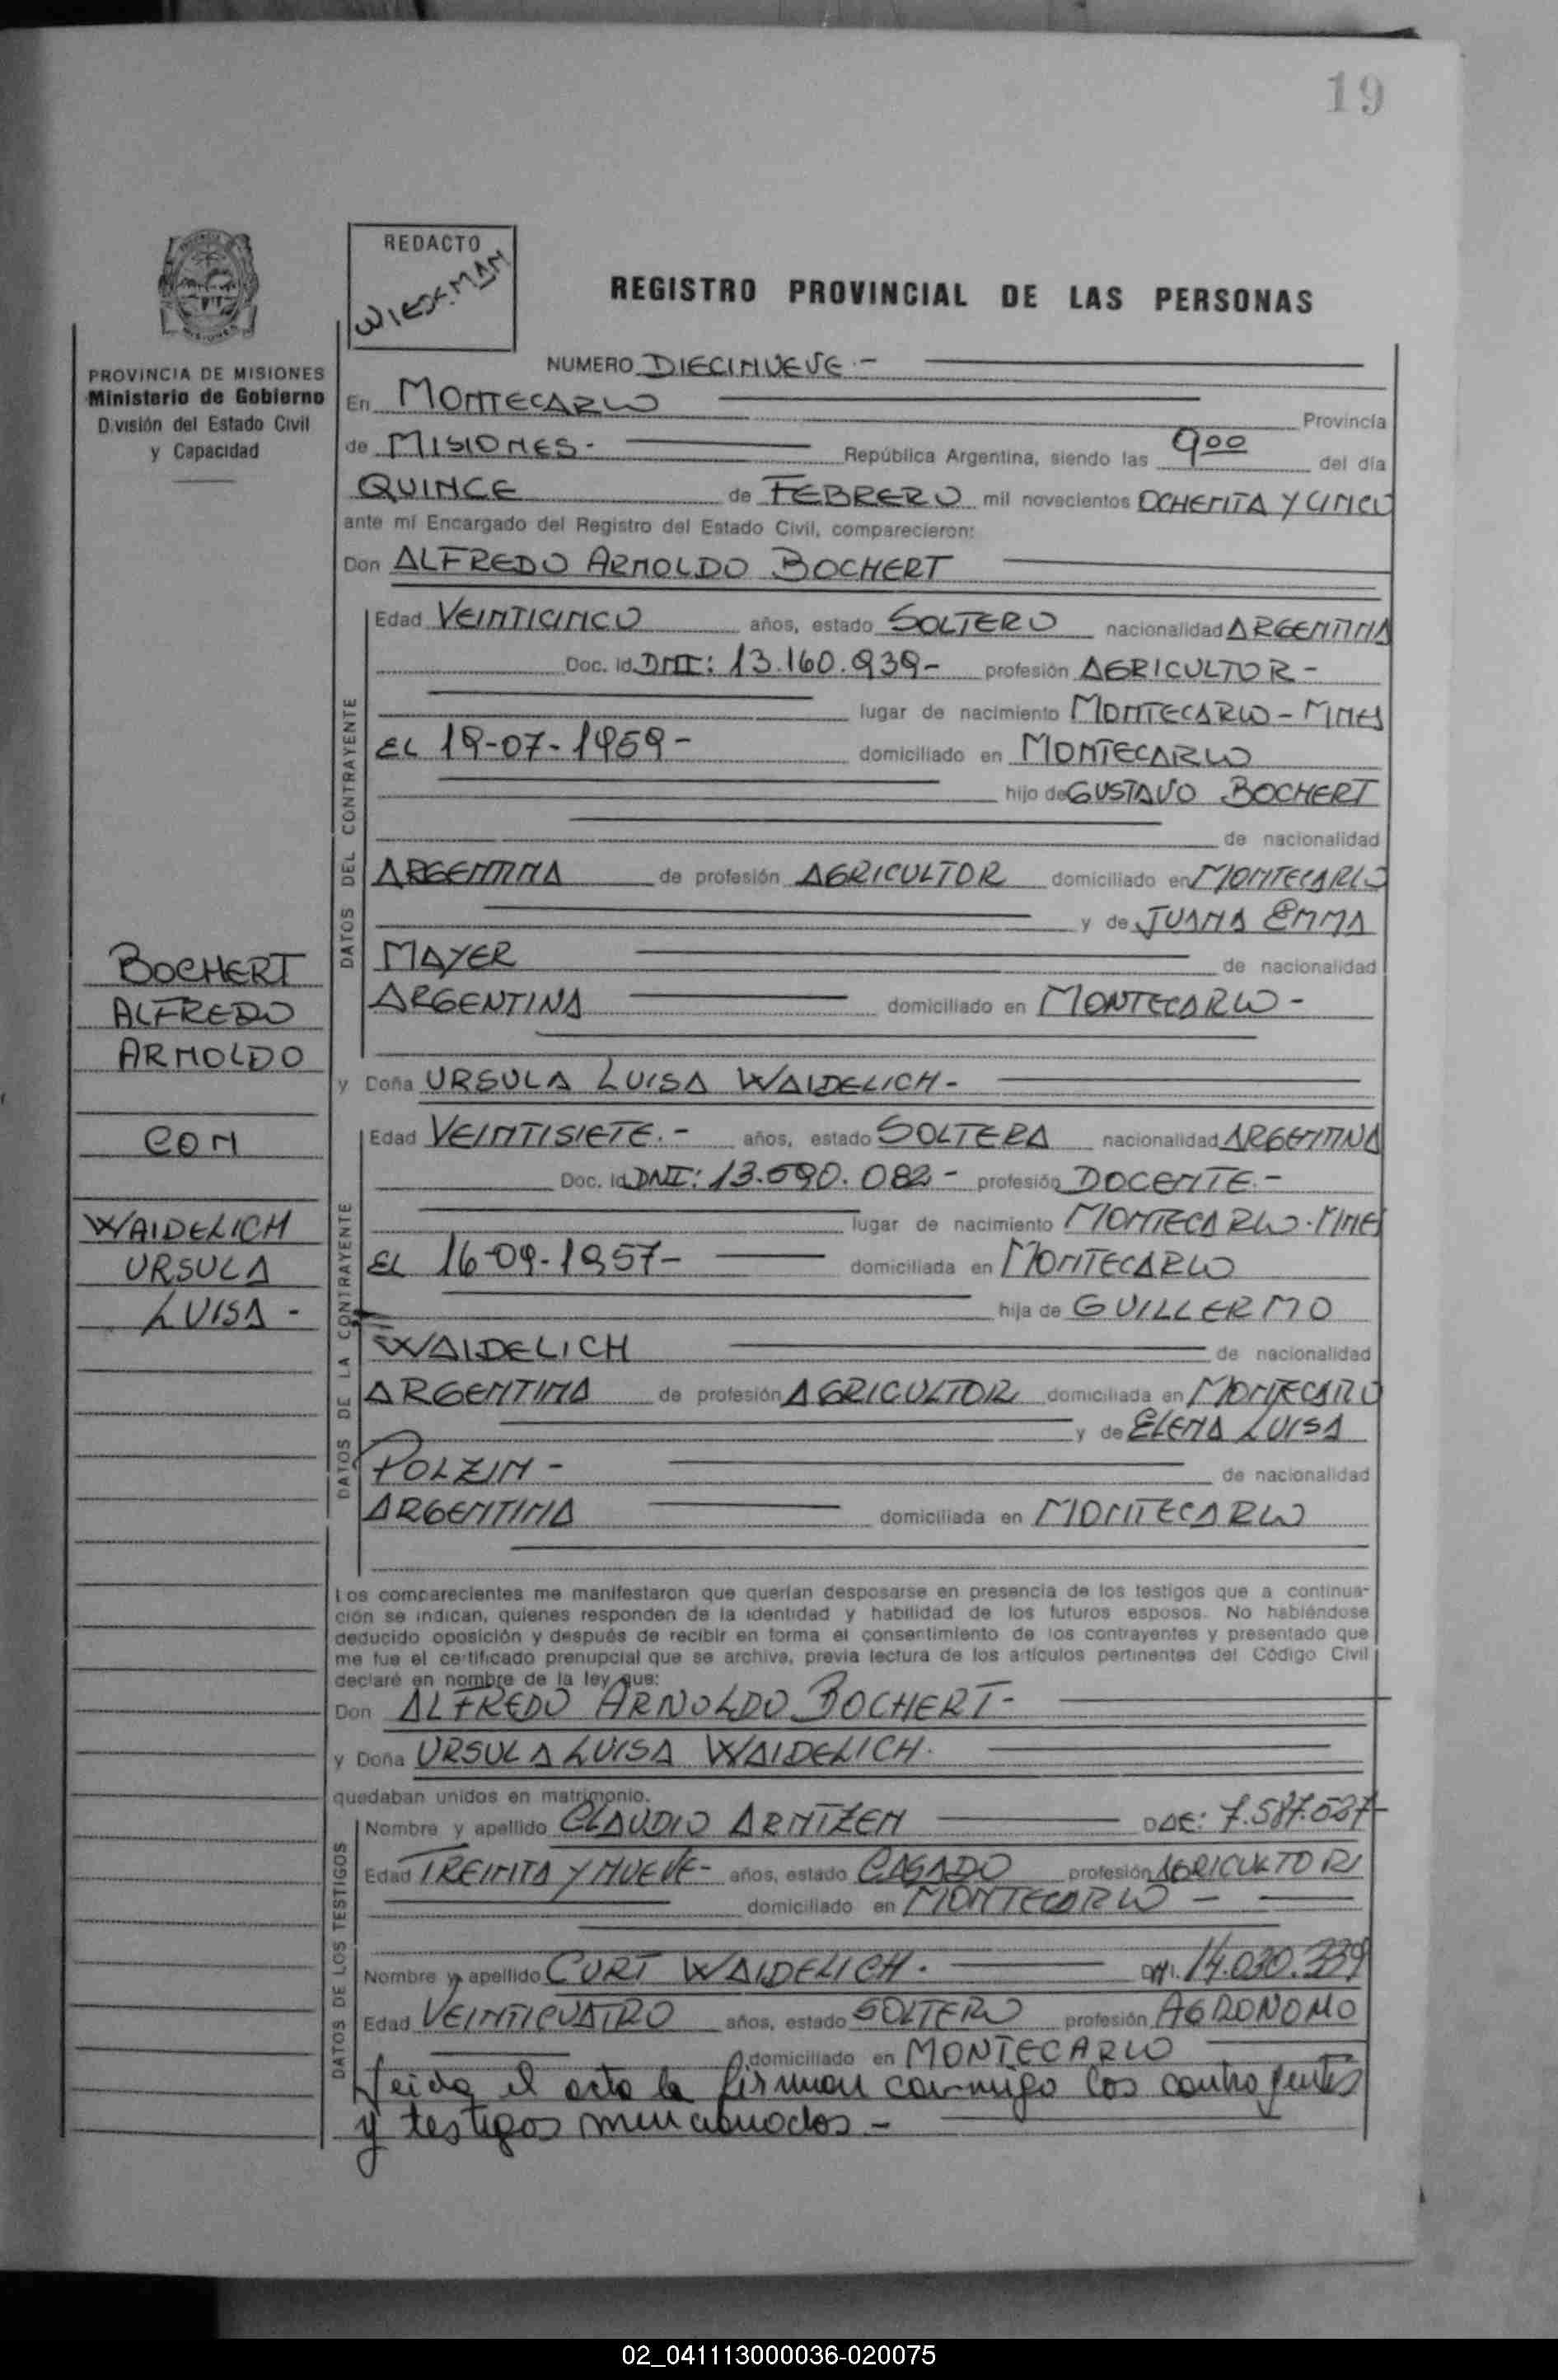 19
REDACTO
WIEDEMAN
REGISTRO PROVINCIAL DE LAS PERSONAS
PROVINCIA DE MISIONES
Ministerio de Gobierno
División del Estado Civil
y Capacidad
NUMERO DIECINUEVE.-
En MONTECARLO Provincia
de MISIONES- República Argentina, siendo las 900 del día
QUINCE de FEBRERO mil novecientos OCHENTA Y CINCO
ante mí Encargado del Registro del Estado Civil, comparecieron:
Don ALFREDO ARNOLDO BOCHERT
DATOS DEL CONTRAYENTE
Edad VEINTICINCO años, estado SOLTERO nacionalidad ARGENTINA
Doc. Id. DNI: 13.160.939- profesión AGRICULTOR-
lugar de nacimiento MONTECARLO-MNES
EL 19-07-1959- domiciliado en MONTECARLO
hijo de GUSTAVO BOCHERT
de nacionalidad
ARGENTINA de profesión AGRICULTOR domiciliado en MONTECARLO
y de JUANA EMMA
MAYER de nacionalidad
ARGENTINA domiciliado en MONTECARLO-
BOCHERT
ALFREDO
ARNOLDO
CON
WAIDELICH
URSULA
LUISA -
y Doña URSULA LUISA WAIDELICH-
DATOS DE LA CONTRAYENTE
Edad VEINTISIETE.- años, estado SOLTERA nacionalidad ARGENTINA
Doc. Id. DNI: 13.690.082- profesión DOCENTE.-
lugar de nacimiento MONTECARLO-MNES
EL 16-09-1957- domiciliada en MONTECARLO
hija de GUILLERMO
WAIDELICH de nacionalidad
ARGENTINA de profesión AGRICULTOR domiciliada en MONTECARLO
y de ELENA LUISA
POLZIN- de nacionalidad
ARGENTINA domiciliada en MONTECARLO
Los comparecientes me manifestaron que querían desposarse en presencia de los testigos que a continua-
ción se indican, quienes responden de la identidad y habilidad de los futuros esposos. No habiéndose
deducido oposición y después de recibir en forma el consentimiento de los contrayentes y presentado que
me fue el certificado prenupcial que se archiva, previa lectura de los artículos pertinentes del Código Civil
declaré en nombre de la ley que:
Don ALFREDO ARNOLDO BOCHERT-
y Doña URSULA LUISA WAIDELICH.
quedaban unidos en matrimonio.
DATOS DE LOS TESTIGOS
Nombre y apellido CLAUDIO ARNTZEN
Edad TREINTA Y NUEVE- años, estado CASADO profesión AGRICULTOR
domiciliado en MONTECARLO -
Nombre y apellido CURT WAIDELICH. DNI. 14.030.339
Edad VEINTICUATRO años, estado SOLTERO profesión AGRONOMO
domiciliado en MONTECARLO
Leida el acta la firman conmigo los contrayentes
y testigos mencionados -
02_041113000036-020075